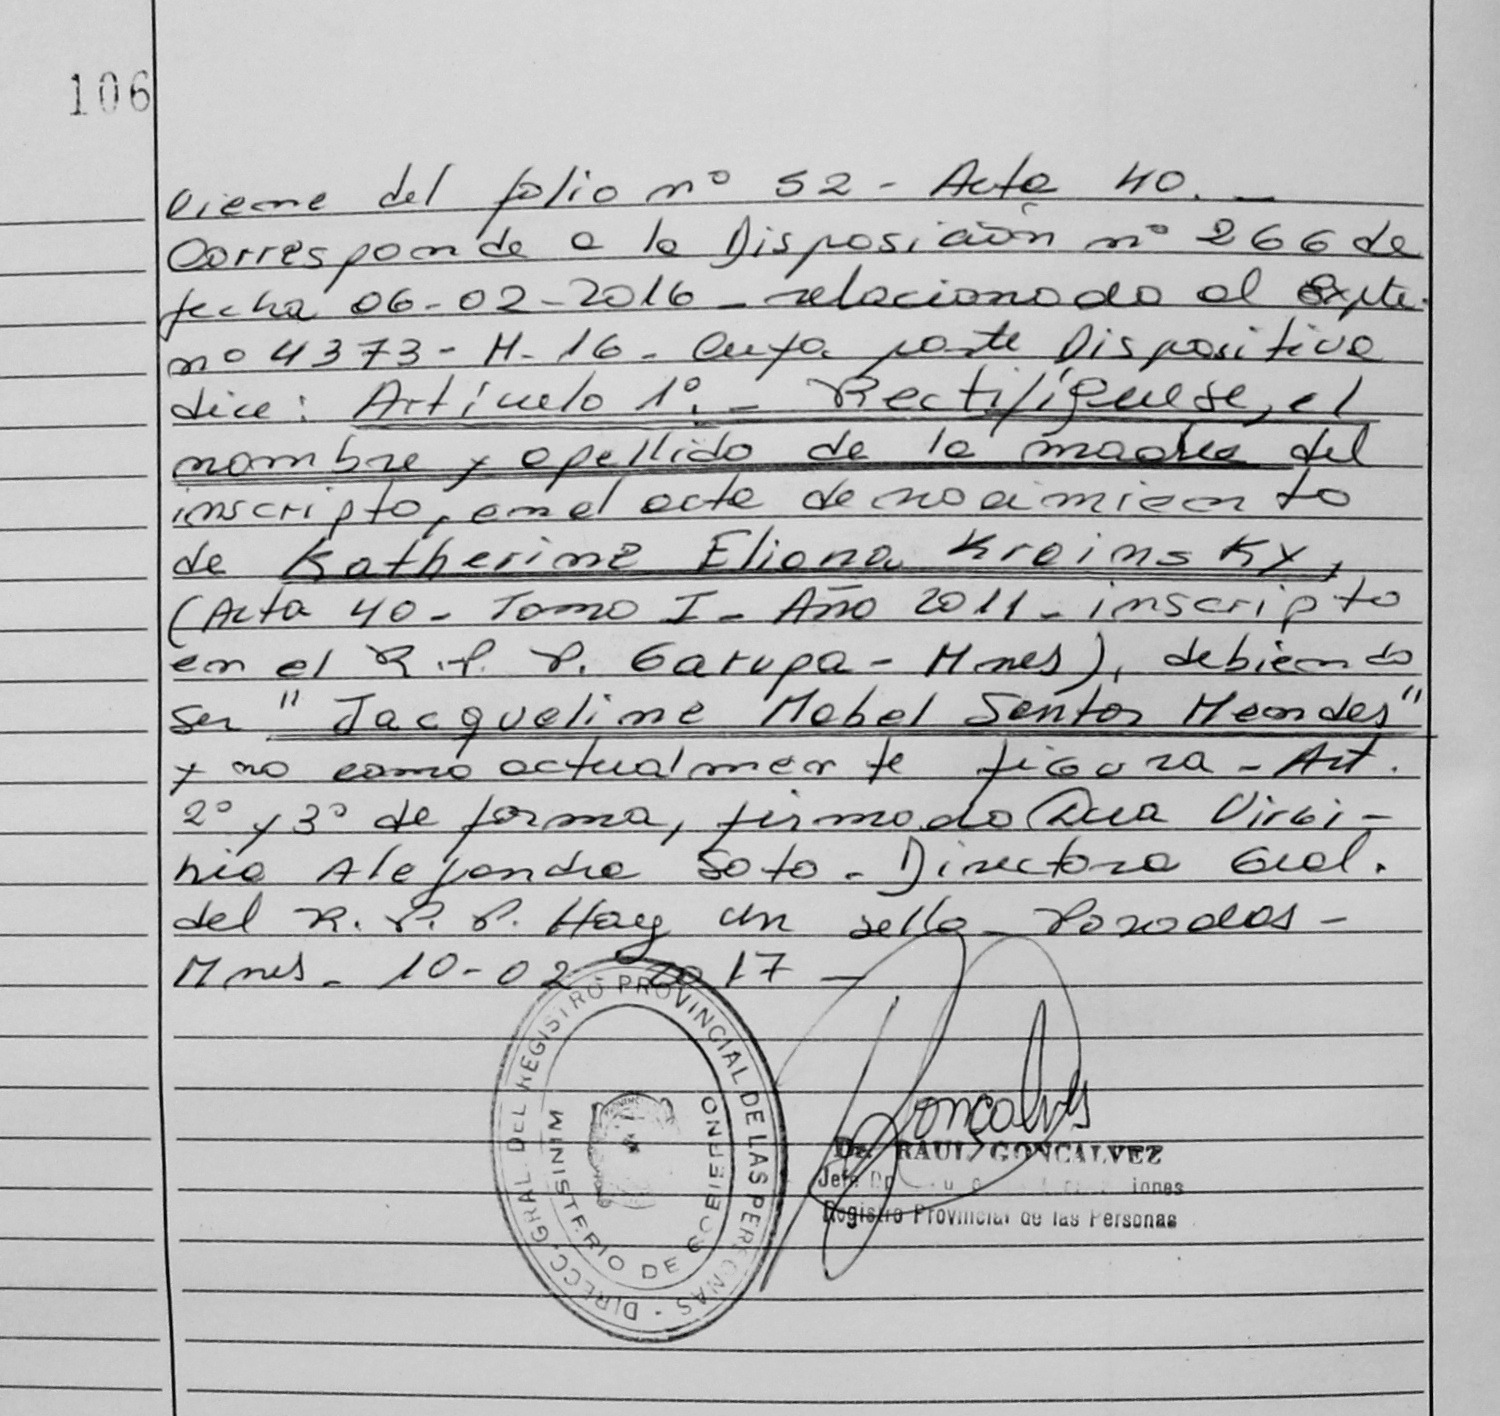 106
Viene del folio nº 52 - Acta 40. -
Corresponde a la Disposición nº 266 de
fecha 06-02-2016 - relacionado al Expte.
nº 4373 - H - 16 - cuya parte Dispositiva
dice: Artículo 1º. - Rectifíquese, el
nombre y apellido de la madre del
inscripto, en el acta de nacimiento
de Katherine Eliana Kreinsky,
(Acta 40 - Tomo I - Año 2011 - inscripto
en el R.P.P. Garupa - Mnes), debiendo
ser "Jacqueline Mabel Santos Mendes"
y no como actualmente figura - Art.
2º y 3º de forma, firmado Dra Virgi-
nia Alejandra Soto - Directora Gral.
del R.P.P. Hay un sello - Posadas -
Mnes. - 10-02-2017 -
DIRECC. GRAL. DEL REGISTRO PROVINCIAL DE LAS PERSONAS -
MINISTERIO DE GOBIERNO
Goncalves
Dr. RAUL GONCALVEZ
Jefe Dp
iones
Registro Provincial de las Personas